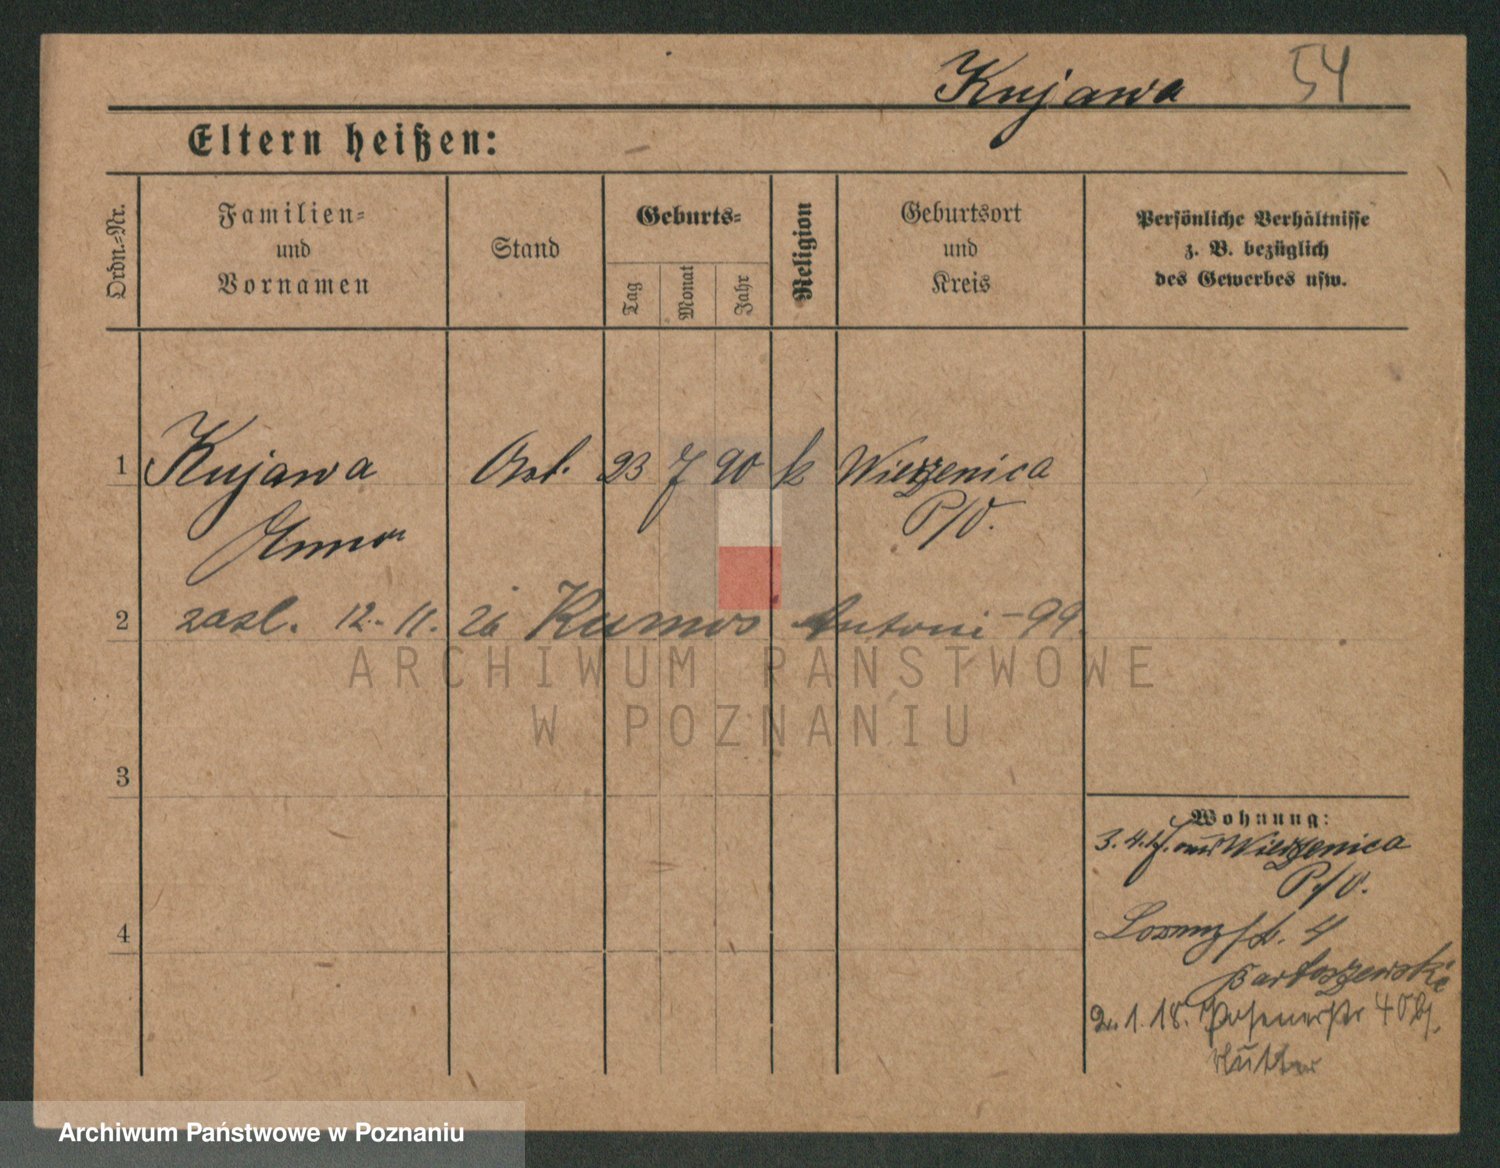 Kujawa 54
Eltern heißen:
Ordn.-Nr.
Familien-
und
Vornamen
Stand
Geburts-
Tag
Monat
Jahr
Religion
Geburtsort
und
Kreis
Persönliche Verhältnisse
z. B. bezüglich
des Gewerbes usw.
1 Kujawa Arb. 23 7 90 k Wierzenica
Anna P/O.
2 zaśl. 12.11.26 Kumos Antoni -99.
3
4
Wohnung:
3.4.17. aus Wierzenica
P/O.
Lorenzstr. 4
Bartoszewski
2.1.18. Posenerstr 40
ARCHIWUM PAŃSTWOWE
W POZNANIU
Archiwum Państwowe w Poznaniu